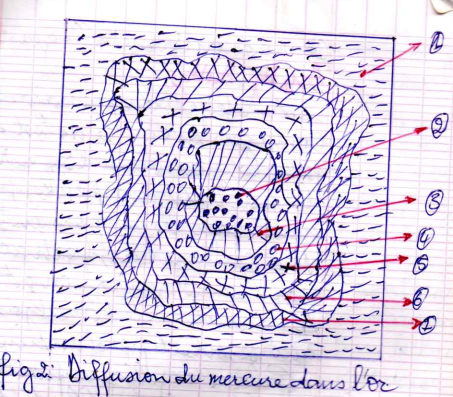 ①
②
③
④
⑤
⑥
①
fig 2: Diffusion du mercure dans l'or